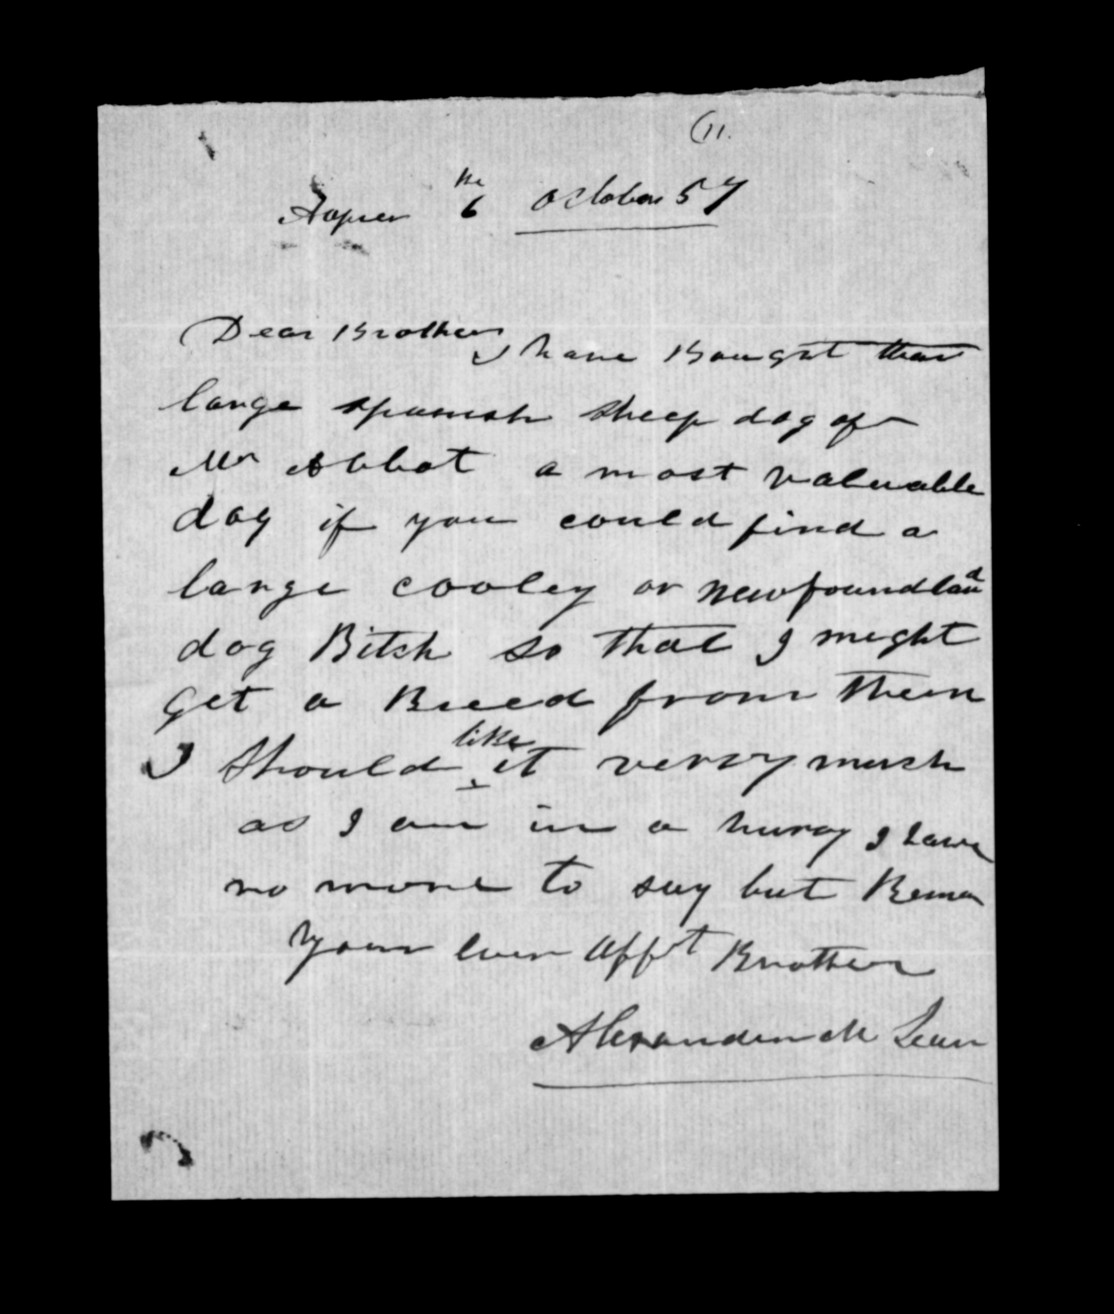 (11.
Napier 6 the October 57
Dear Brother I have Bought that
large spanish sheep dog of
Mr Abbot a most valuable
dog if you could find a
large cooley or newfoundland
dog Bitch so that I might
get a Breed from them
I should like it verry much
as I am in a hurry I have
no more to say but Remain
Your ever afft Brother
Alexander Mc Lean